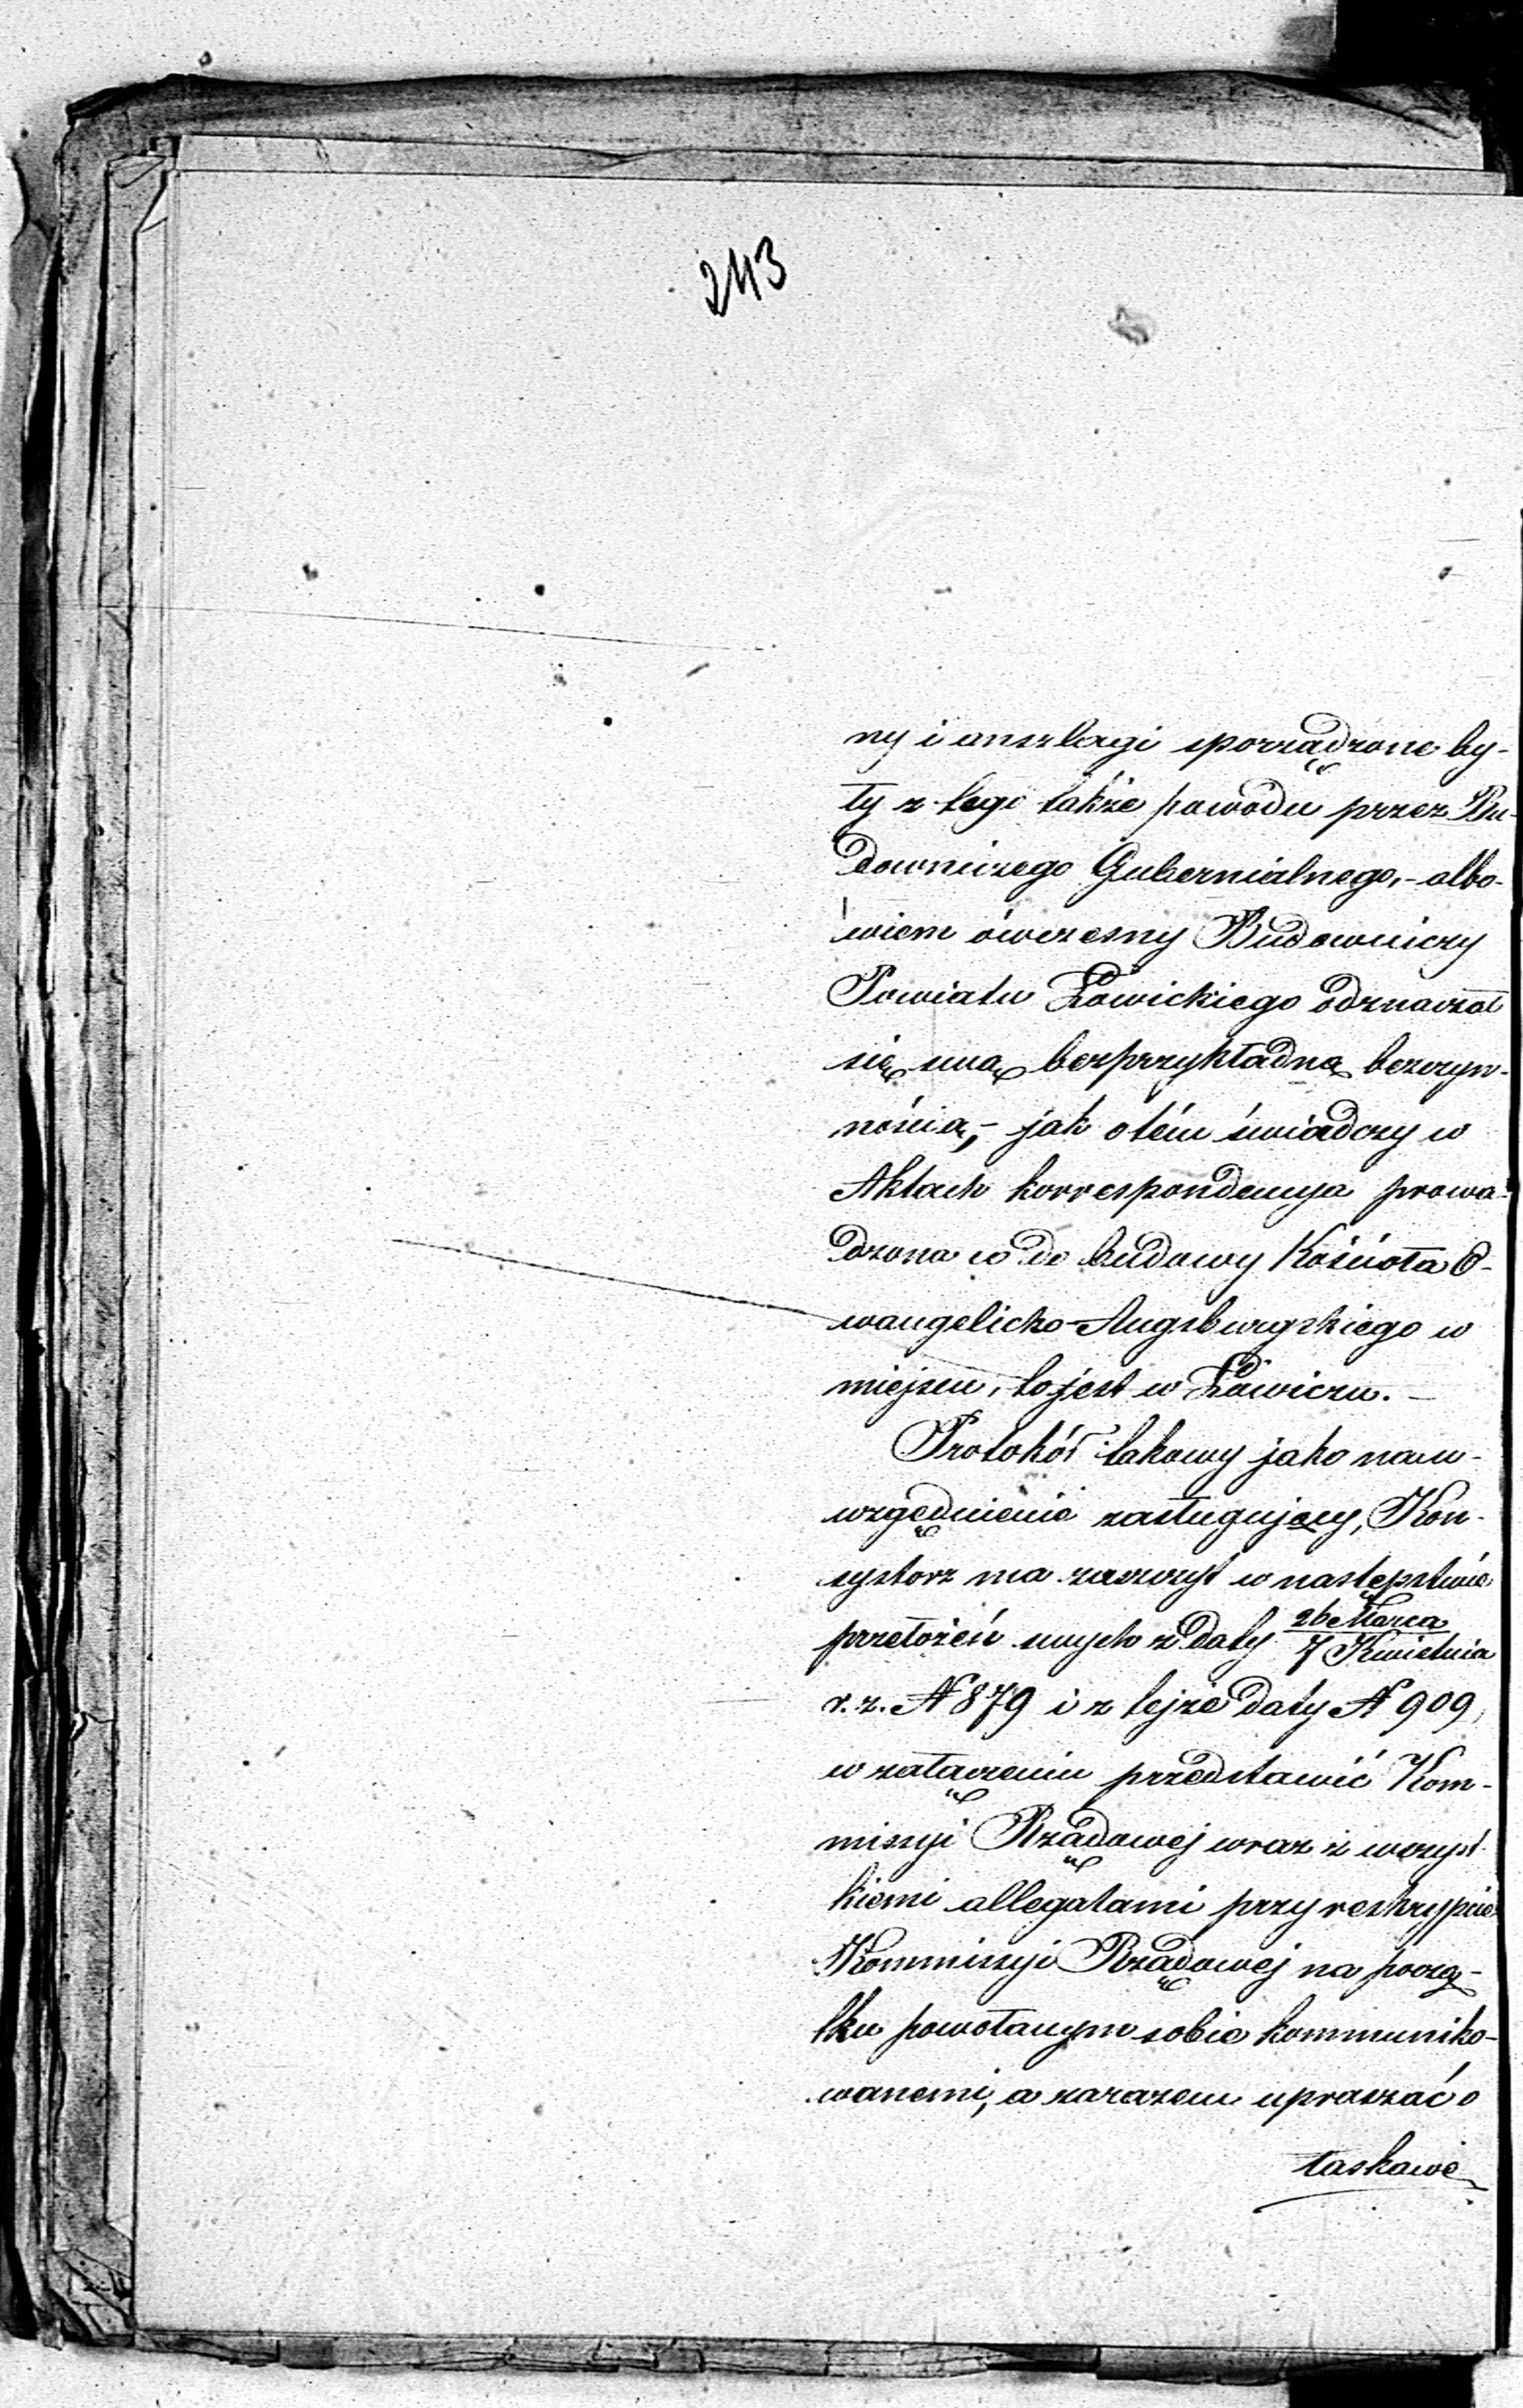 243
ny i anszlagi sporządzone by-
ły z tego także powodu przez Bu-
downiczego Gubernialnego, - albo-
wiem ówczesny Budowniczy
Powiatu Łowickiego odznaczał
się swą bezprzykładną bezczyn-
nością, - jak o tém świadczy w
Aktach korrespondencya prowa-
dzona co do budowy Kościoła E-
wangelicko-Augsburgskiego w
miejscu, to jest w Łowiczu. -
Protokół takowy jako na u-
wzgędnienie zasługujący, Kon-
systorz ma zaszczyt w następstwie
przełożeń swych z daty 26 Marca / 7 Kwietnia
r. z. N 879 i z tejże daty N 909,
w załączeniu przedstawić Kom-
missyi Rządowej wraz z wszyst-
kiemi allegatami przy reskrypcie
Kommissyi Rządowej na począ-
tku powołanym sobie kommuniko-
wanemi, a zarazem upraszać o
łaskawe